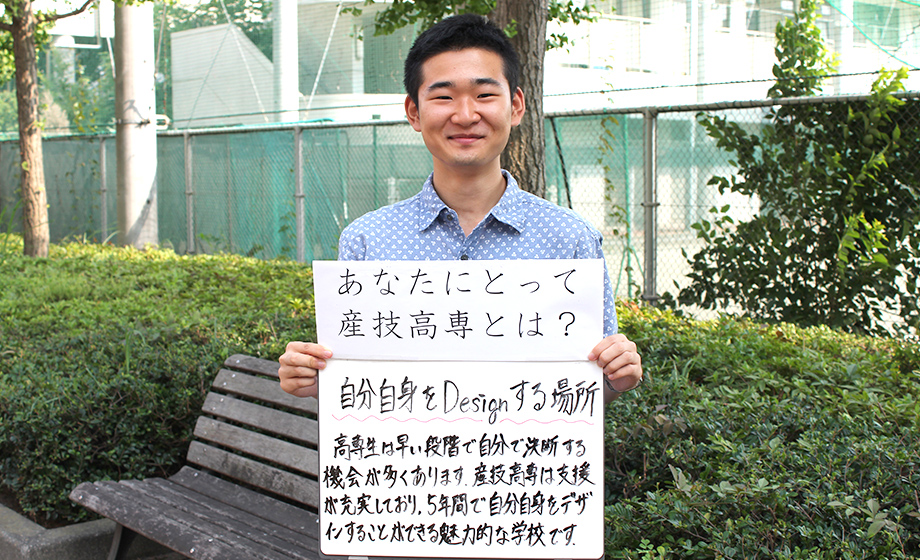 あなたにとって
産技高専とは？
自分自身をDesignする場所
高専生は早い段階で自分で決断する
機会が多くあります。産技高専は支援
が充実しており、5年間で自分自身をデザ
インすることができる魅力的な学校です。